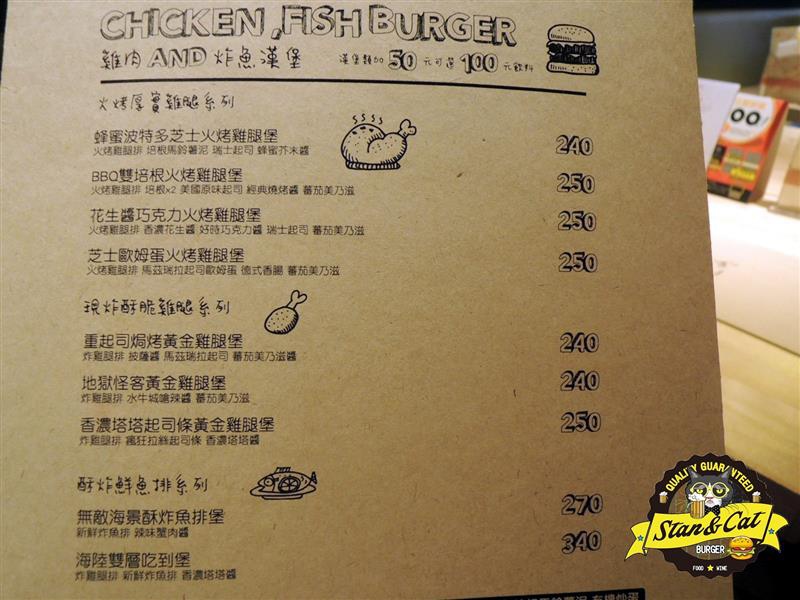 CHICKEN, FISH BURGER
雞肉 AND 炸魚漢堡 漢堡類加50元可選100元飲料
火烤厚實雞腿系列
蜂蜜波特多芝士火烤雞腿堡 240
火烤雞腿排 培根馬鈴薯泥 瑞士起司 蜂蜜芥末醬
BBQ雙培根火烤雞腿堡 250
火烤雞腿排 培根x2 美國原味起司 經典燒烤醬 蕃茄美乃滋
花生醬巧克力火烤雞腿堡 250
火烤雞腿排 香濃花生醬 好時巧克力醬 瑞士起司 蕃茄美乃滋
芝士歐姆蛋火烤雞腿堡 250
火烤雞腿排 馬茲瑞拉起司歐姆蛋 德式香腸 蕃茄美乃滋
現炸酥脆雞腿系列
重起司焗烤黃金雞腿堡 240
炸雞腿排 披薩醬 馬茲瑞拉起司 蕃茄美乃滋醬
地獄怪客黃金雞腿堡 240
炸雞腿排 水牛城嗆辣醬 蕃茄美乃滋
香濃塔塔起司條黃金雞腿堡 250
炸雞腿排 瘋狂拉絲起司條 香濃塔塔醬
酥炸鮮魚排系列
無敵海景酥炸魚排堡 270
新鮮炸魚排 辣味蟹肉醬
海陸雙層吃到堡 340
炸雞腿排 新鮮炸魚排 香濃塔塔醬
QUALITY GUARANTEED
Stan & Cat
BURGER
FOOD ★ WINE